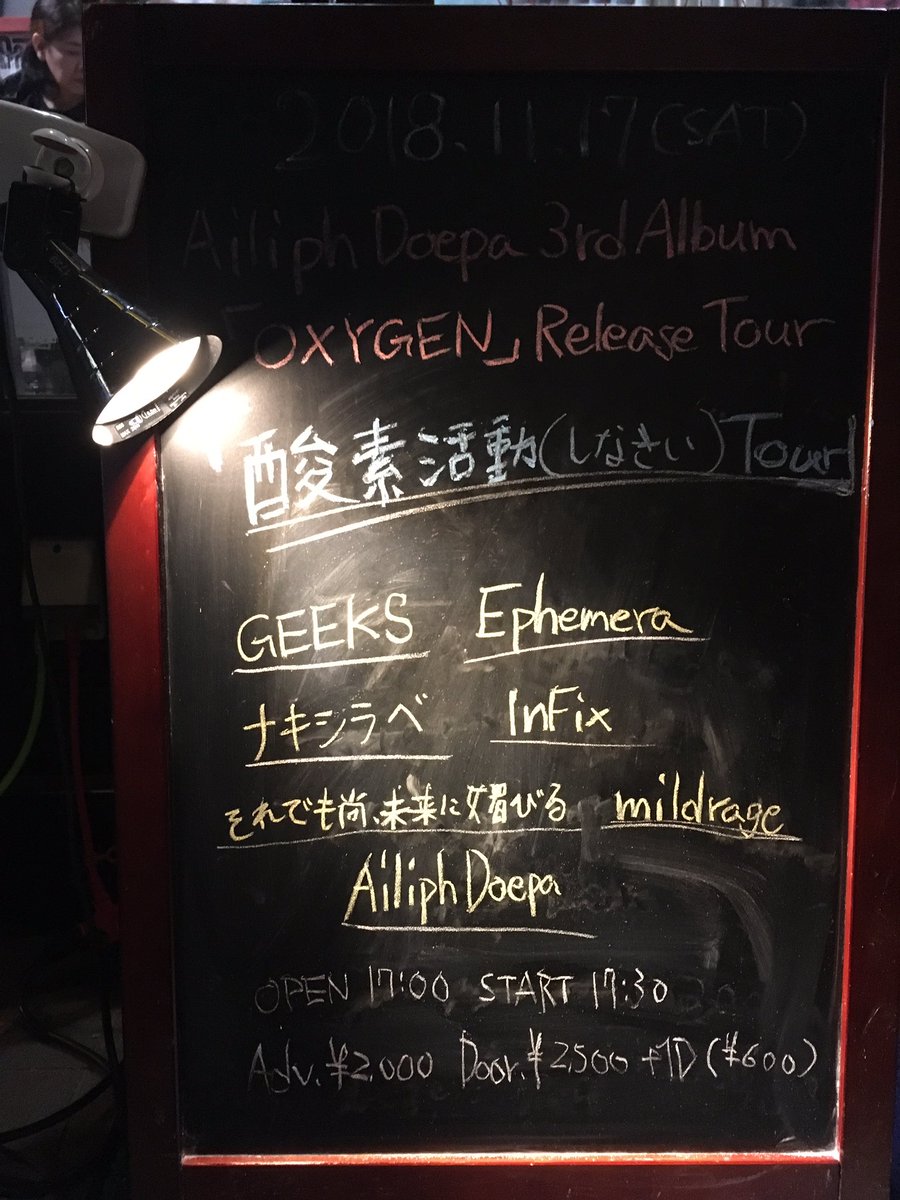 2018.11.17(SAT)
Ailiph Doepa 3rd Album
「OXYGEN」Release Tour
酸素活動(しなさい)Tour」
GEEKS Ephemera
ナキシラベ InFix
それでも尚、未来に媚びる mildrage
Ailiph Doepa
OPEN 17:00 START 17:30
Adv.¥2.000 Door.¥2.500 +1D(¥600)